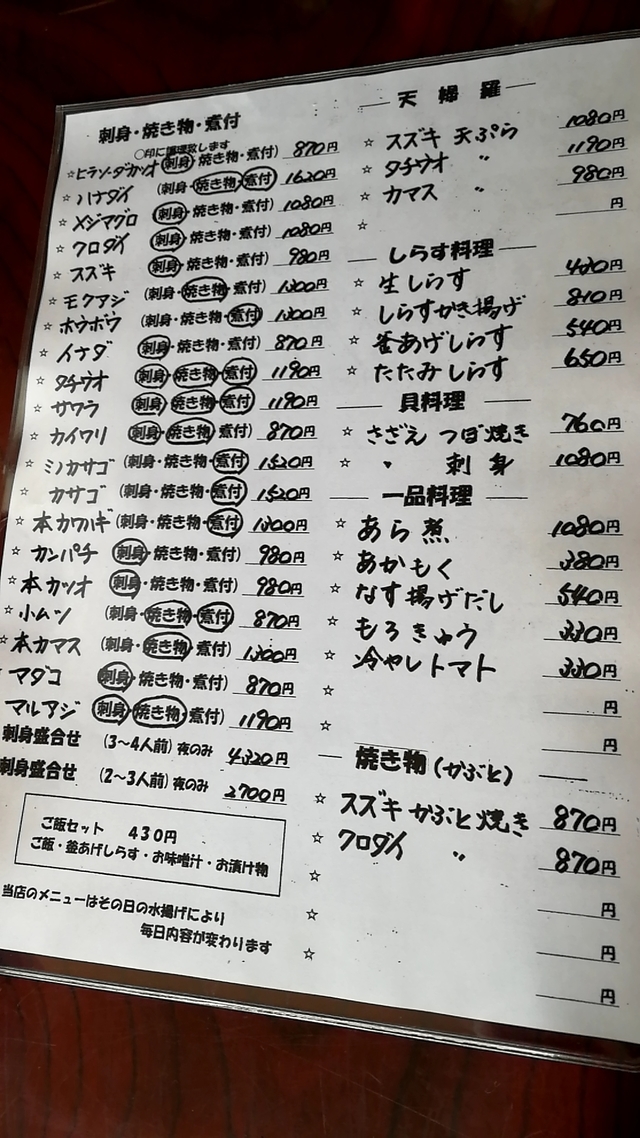 刺身・焼き物・煮付
○印に調理致します
☆ヒラソーダカツオ (刺身・焼き物・煮付) 870円
☆ ハナダイ (刺身・焼き物・煮付) 1620円
☆ メジマグロ (刺身・焼き物・煮付) 1080円
☆ クロダイ (刺身・焼き物・煮付) 1080円
☆ スズキ (刺身・焼き物・煮付) 980円
☆ モクアジ (刺身・焼き物・煮付) 1300円
☆ ホウボウ (刺身・焼き物・煮付) 1300円
☆ イナダ (刺身・焼き物・煮付) 870円
☆ タチウオ (刺身・焼き物・煮付) 1190円
☆ サワラ (刺身・焼き物・煮付) 1190円
☆ カイワリ (刺身・焼き物・煮付) 870円
☆ ミノカサゴ (刺身・焼き物・煮付) 1520円
☆ カサゴ (刺身・焼き物・煮付) 1520円
☆ 本カワハギ (刺身・焼き物・煮付) 1300円
☆ カンパチ (刺身・焼き物・煮付) 980円
☆ 本カツオ (刺身・焼き物・煮付) 980円
☆ 小ムツ (刺身・焼き物・煮付) 870円
☆ 本カマス (刺身・焼き物・煮付) 1300円
マダコ (刺身・焼き物・煮付) 870円
マルアジ (刺身・焼き物・煮付) 1190円
刺身盛合せ (3〜4人前) 夜のみ 4320円
刺身盛合せ (2〜3人前) 夜のみ 2700円
ご飯セット 430円
ご飯・釜あげしらす・お味噌汁・お漬け物
当店のメニューはその日の水揚げにより
毎日内容が変わります
天 婦 羅
☆ スズキ 天ぷら 1080円
☆ タチウオ 〃 1190円
☆ カマス 〃 980円
☆ 円
しらす料理
☆ 生しらす 430円
☆ しらすかき揚げ 810円
☆ 釜あげしらす 540円
☆ たたみしらす 650円
貝料理
☆ さざえ つぼ焼き 760円
☆ 〃 刺 身 1080円
一品料理
☆ あら煮 1080円
☆ あかもく 380円
☆ なす揚げだし 540円
☆ もろきゅう 330円
☆ 冷やしトマト 330円
☆ 円
☆ 円
焼き物 (かぶと)
☆ スズキ かぶと焼き 870円
☆ クロダイ 〃 870円
☆ 円
☆ 円
☆ 円